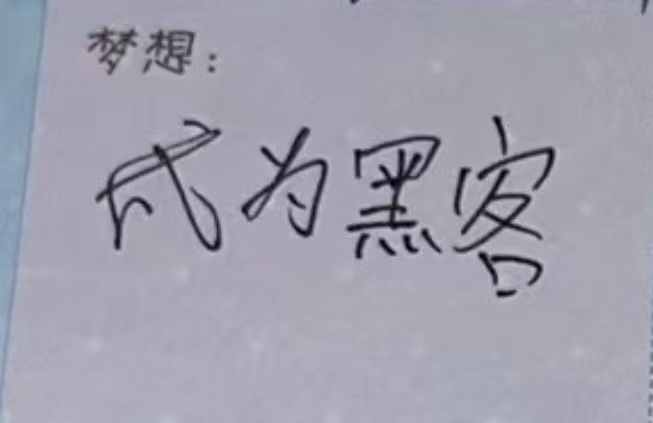 梦想：
成为黑客